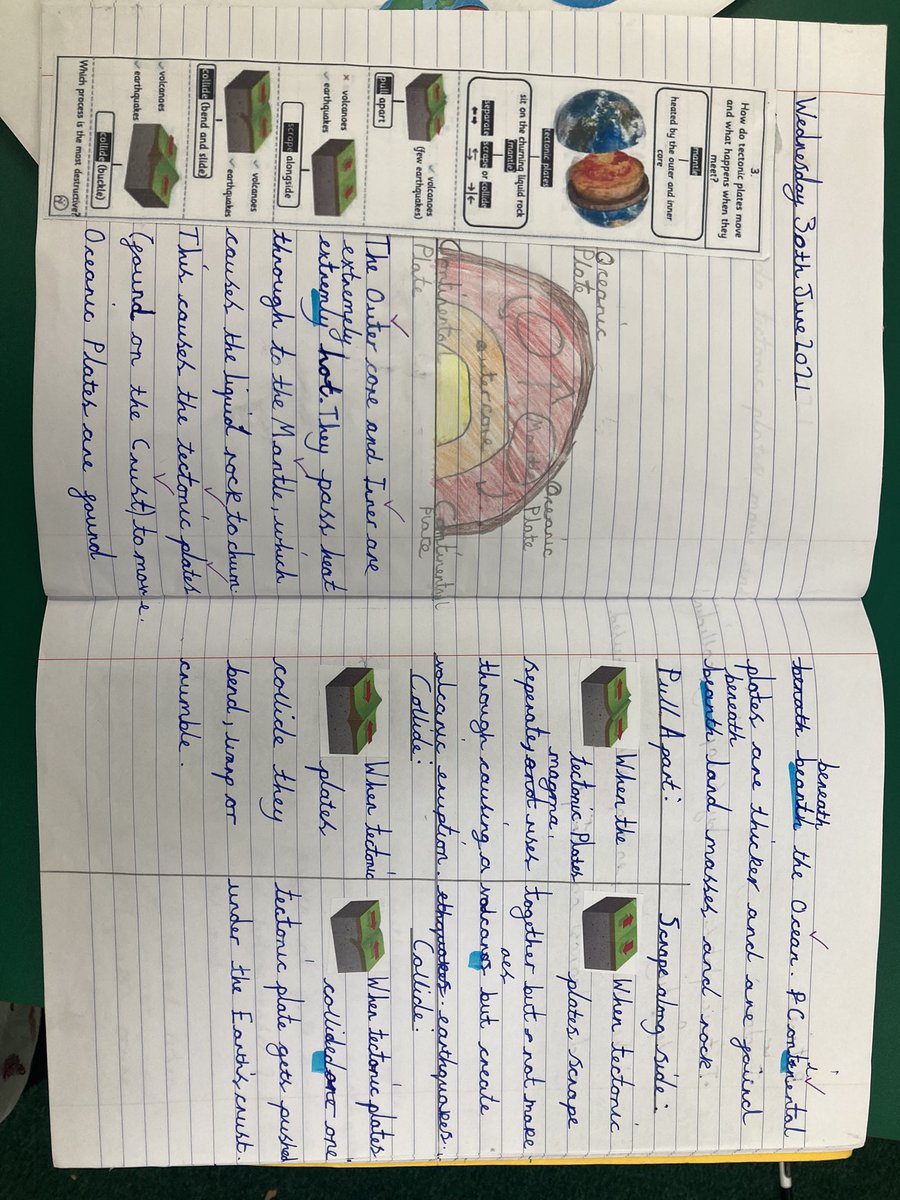 Wednesday 30th June 2021
3.
How do tectonic plates move
and what happens when they
meet?
mantle
heated by the outer and inner
core
tectonic plates
sit on the churning liquid rock
mantle
separate scrape or collide
pull apart
✓ volcanoes
(few earthquakes)
✗ volcanoes
✓ earthquakes
scrape alongside
✓ volcanoes
✓ earthquakes
collide (bend and slide)
✓ volcanoes
✓ earthquakes
collide (buckle)
Which process is the most destructive?
Oceanic
Plate
Continental
Plate
Outer core
Mantle
Oceanic
Plate
Continental
Plate
The Outer core and Iner are
extremely
extremy hot. They pass heat
through to the Mantle, which
causes the liquid rock to churn.
This causes the tectonic plates
(found on the Crust) to move.
Oceanic Plates are found
beneath
beanth the Ocean. Contenental
i
plates are thicker and are found
beneath
beanth land masses and rock.
Pull Apart:
When the
tectonic Plates
magma
seperate, rises
through causing a
volcanic eruption.
Scrape along side:
When tectonic
plates scrape
together but not make
oes
volcanos but create
earthquakes.
Collide:
When tectonic
plates
collide they
bend, warp or
crumble.
Collide:
When tectonic plates
collided one
tectonic plate gets pushed
under the Earth's crust.